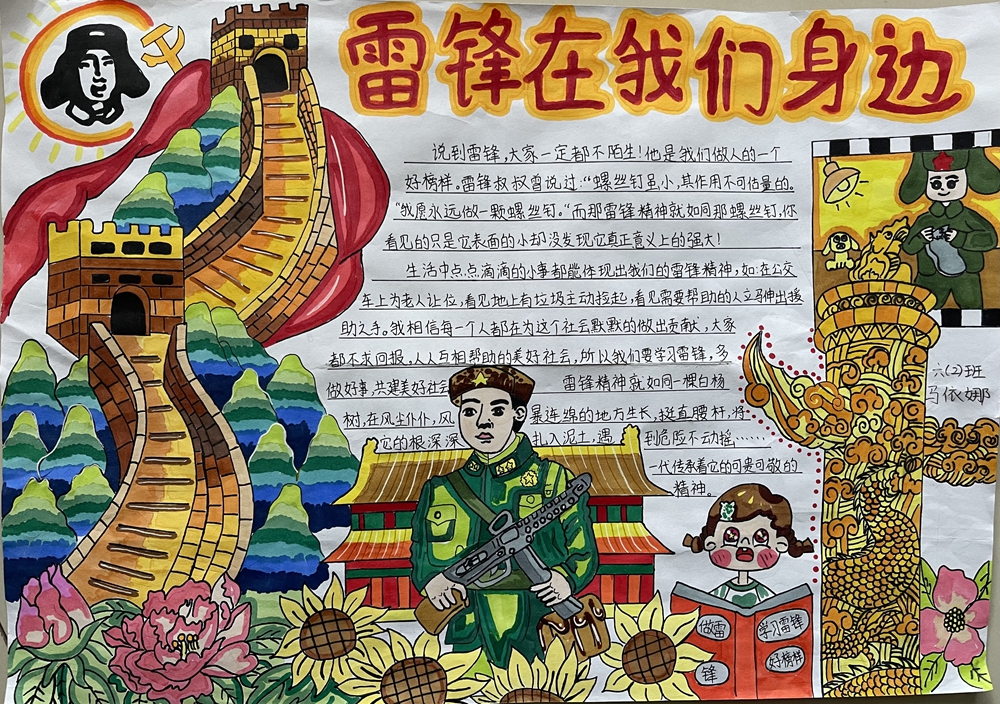 雷锋在我们身边
说到雷锋,大家一定都不陌生!他是我们做人的一个
好榜样。雷锋叔叔曾说过:“螺丝钉虽小,其作用不可估量的。
“我愿永远做一颗螺丝钉。“而那雷锋精神就如同那螺丝钉,你
看见的只是它表面的小却没发现它真正意义上的强大!
生活中点点滴滴的小事都能体现出我们的雷锋精神,如:在公交
车上为老人让位,看见地上有垃圾主动捡起,看见需要帮助的人立马伸出援
助之手。我相信每一个人都在为这个社会默默的做出贡献,大家
都不求回报,人人互相帮助的美好社会,所以我们要学习雷锋,多
做好事,共建美好社会 雷锋精神就如同一棵白杨
树,在风尘仆仆,风 暴连绵的地方生长,挺直腰杆,将
它的根深深 扎入泥土,遇 到危险不动摇……
一代传承着它的可贵可敬的
精神。
六(2)班
马依娜
做雷
锋
学习雷锋
好榜样